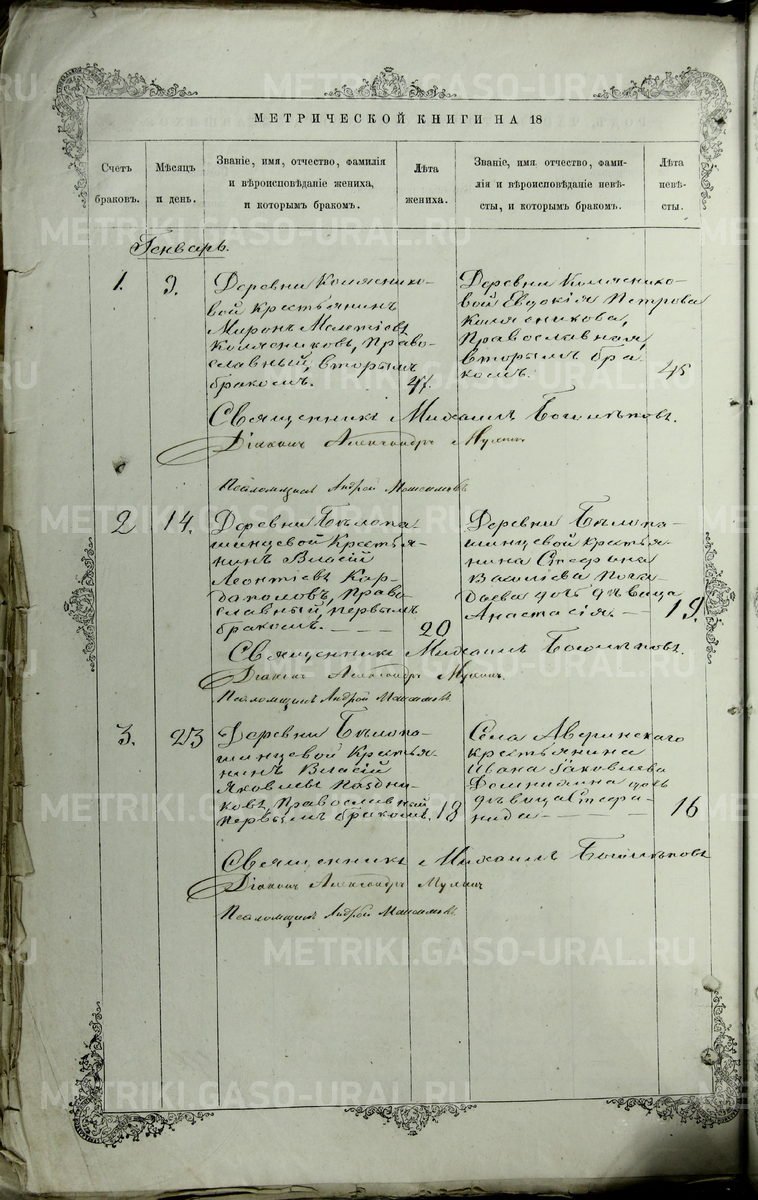 МЕТРИЧЕСКОЙ КНИГИ НА 18
Счетъ браковъ.
Мѣсяцъ и день.
Званіе, имя, отчество, фамилія и вѣроисповѣданіе жениха, и которымъ бракомъ.
Лѣта жениха.
Званіе, имя, отчество, фамилія и вѣроисповѣданіе невѣсты, и которымъ бракомъ.
Лѣта невѣсты.
Генварь.
1. 9.
Деревни Колясnико-
вой Крестьянинъ
Миронъ Мелетіевъ
Колясниковъ, Право-
славный, вторымъ
бракомъ. 47.
Деревни Коляснико-
вой Евдокія Петрова
Колясникова,
Православная,
вторымъ бра
комъ. 45
Священникъ Михаилъ
Діаконъ Александръ
Псаломщикъ Андрей
2 14.
Деревни Бѣлопа
шинцевой Крестья-
нинъ Власій
Леонтіевъ Кор-
даполовъ, Право-
славный, первымъ
бракомъ. 20
Деревни Бѣлопа-
шинцевой крестья-
нина Стефана
Василіева Пога
даева дочь дѣвица
Анастасія. 19.
Священникъ Михаилъ
Діаконъ Александръ
Псаломщикъ Андрей
3. 23
Деревни Бѣлопа-
шинцевой Крестья-
нинъ Власій
Яковлевъ Поздни-
ковъ, Православный
первымъ бракомъ. 18
Села Аверинскаго
крестьянина
Ивана Іаковлева
дочь
дѣвица Стефа-
нида 16
Священникъ Михаилъ
Діаконъ Александръ
Псаломщикъ Андрей
METRIKI.GASO-URAL.RU